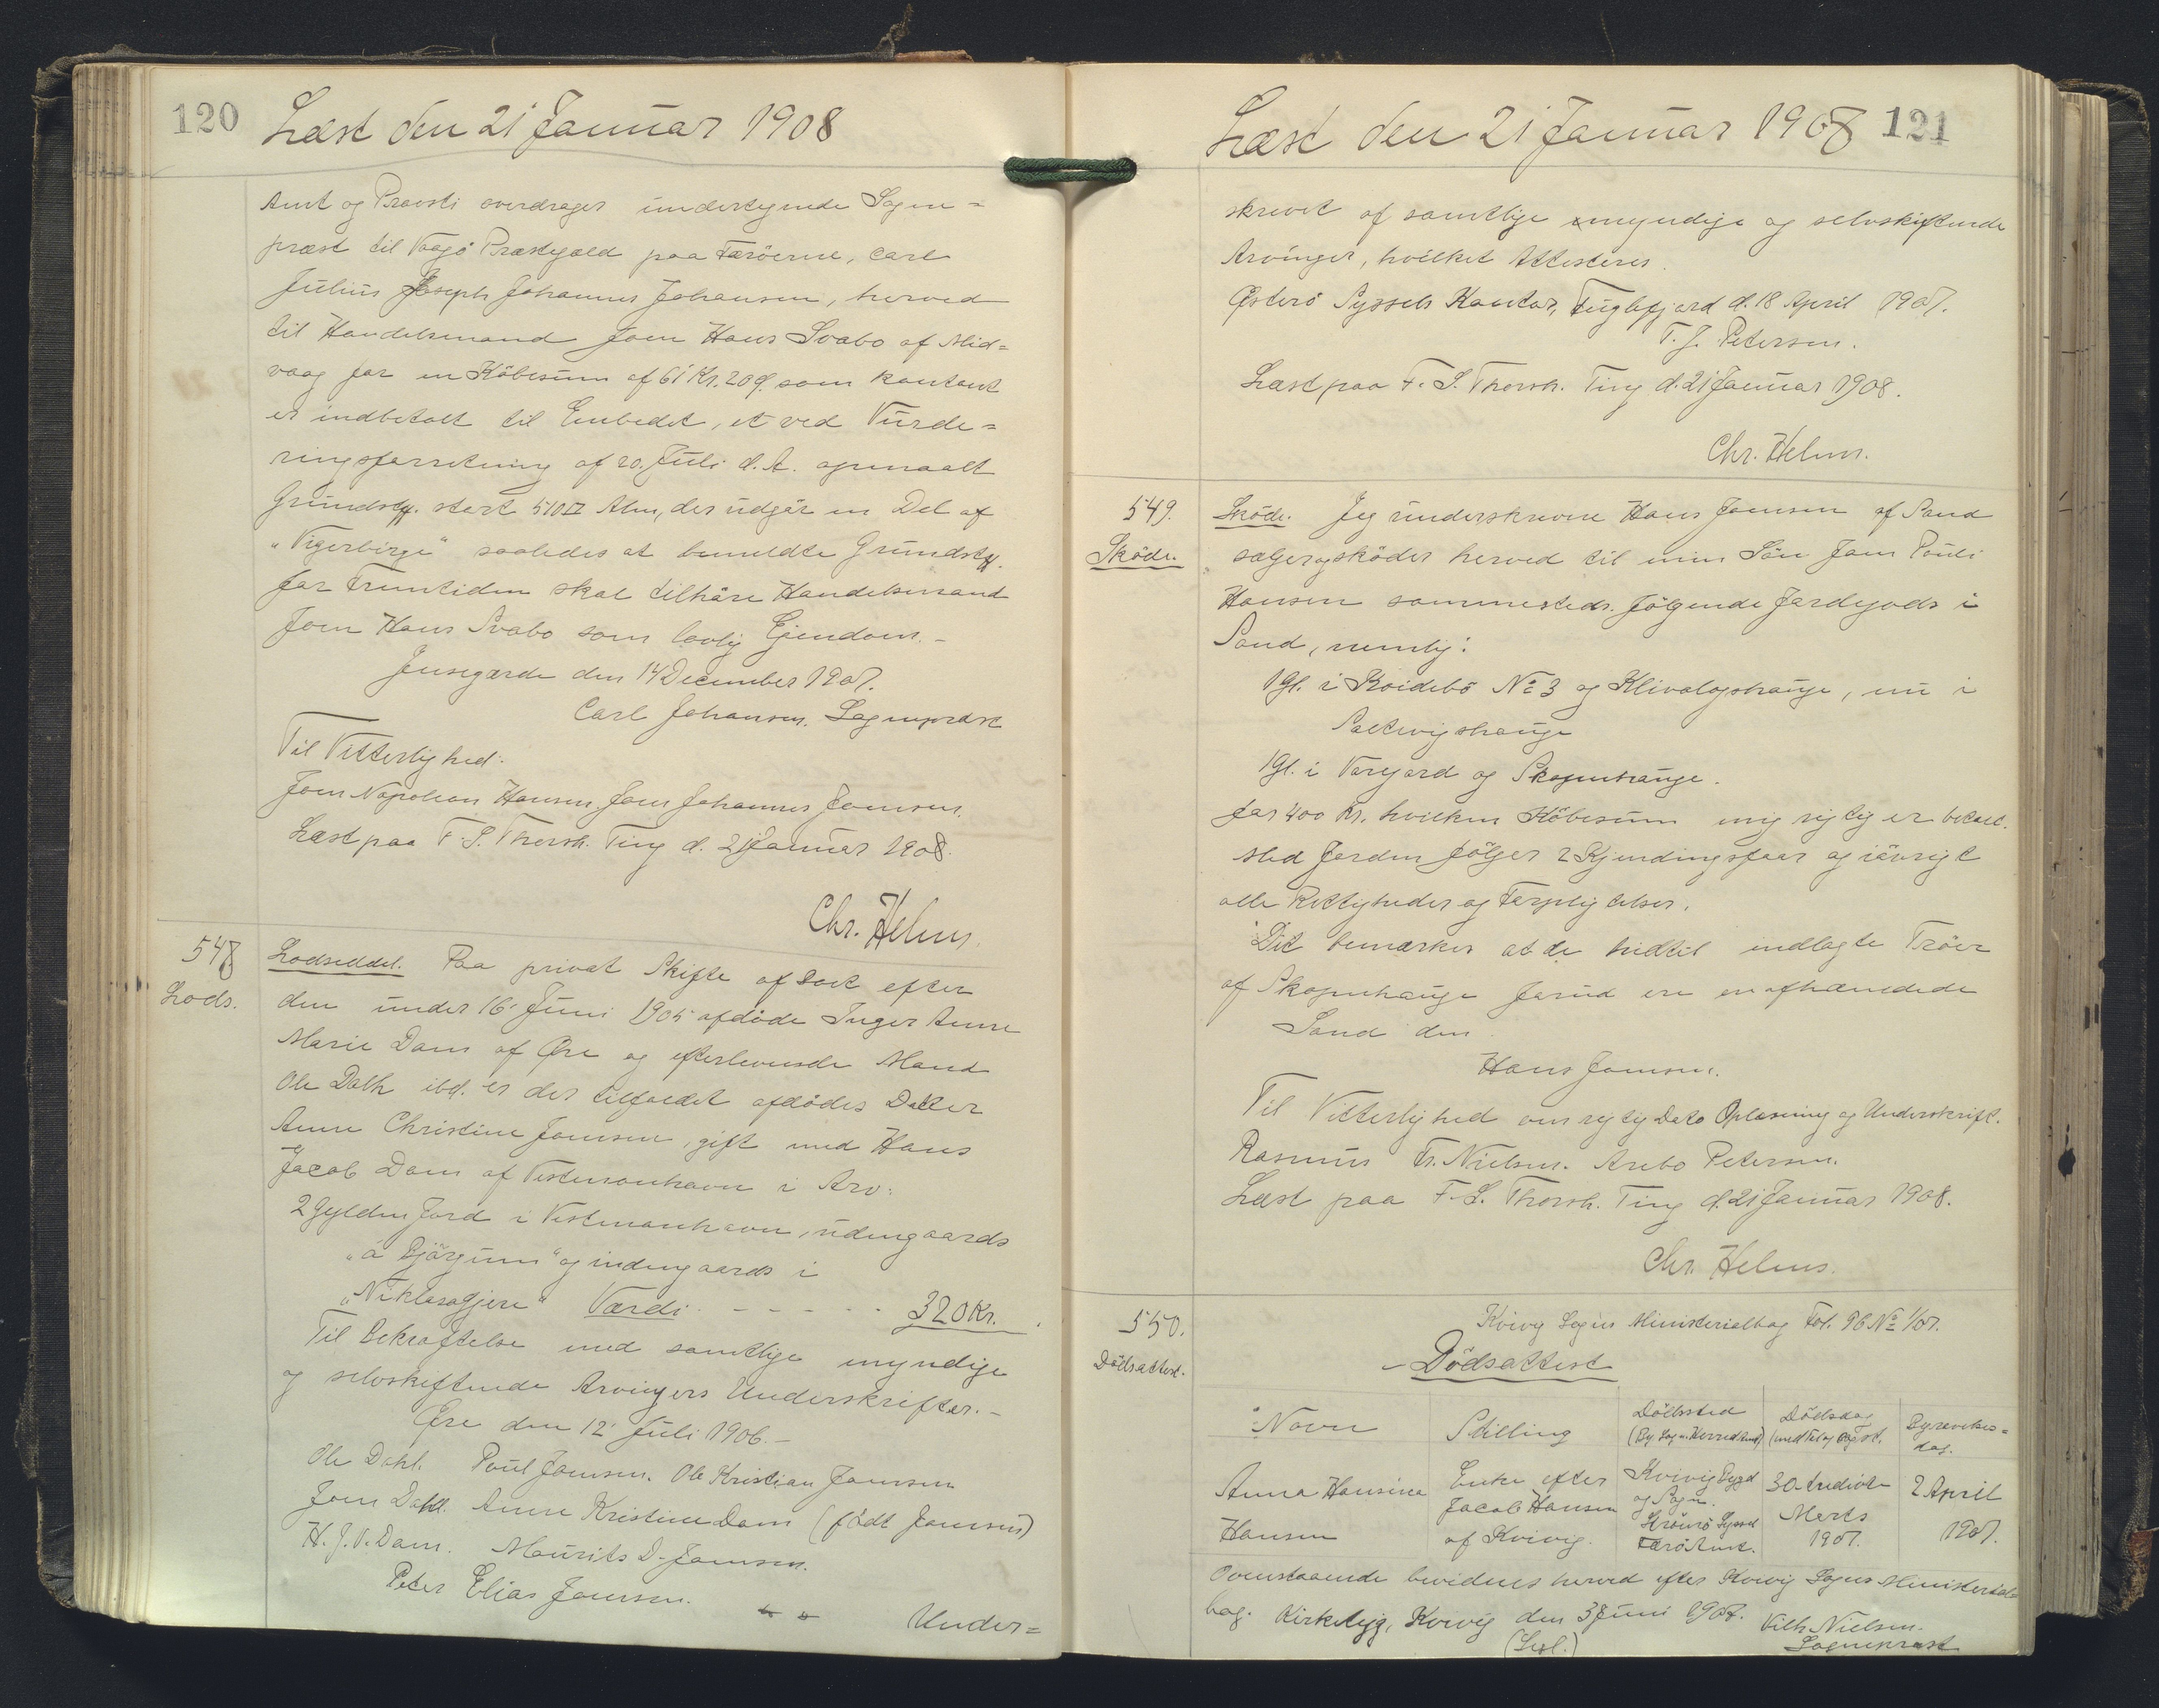 120 Læst den 21 Januar 1908
Amt og Provsti overdrager undertegnede Sogne=
præst til Vaagø Præstegæld paa Færøerne, Carl
Julius Joseph Johannes Johansen, herved
til Handelsmand Joen Hans Svabo af Mid=
vaag for en Købesum af 61 Kr. 20 Ø. som kontant
er indbetalt til Embedet, et ved Vurde=
ringsforretning af 20. Juli d. A. opmaalt
Grundst. stort 510 □ Alen, der udgør en Del af
"Vigerbirge" saaledes at bemeldte Grundst.
for Fremtiden skal tilhøre Handelsmand
Joen Hans Svabo som lovlig Ejendom. -
Jensegærde den 14 December 1907.
Carl Johansen. Sognepræst
Til Vitterlighed:
Joen Napoleon Hansen. Joen Johannes Joensen.
Læst paa F. S. Thorsh. Ting d. 21 Januar 1908.
Chr. Helms.
548
Lods.
Lodseddel. Paa privat Skifte afholdt efter
den under 16' Juni 1905 afdøde Inger Anne
Marie Dam af Øre og efterlevende Mand
Ole Dalh ibd. er der tilfaldet afdødes Datter
Anne Christine Joensen, gift med Hans
Jacob Dam af Vestmanhavn i Arv:
2 Gylden Jord i Vestmanhavn, udengaards
"á Bjørgum" og indengaards i
"Niklasagjere" Værdi - - - - - 320 Kr.
Til Bekræftelse med samtlige myndige
og selvskiftende Arvingers Underskrifter. -
Øre den 12' Juli 1906. -
Ole Dahl. Poul Joensen. Ole Kristian Joensen
Joen Dahl. Anne Kristine Dam (født Joensen)
H. J. V. Dam. Maurits D. Joensen.
Peter Elias Joensen.
Under=
Læst den 21 Januar 1908 121
skrevet af samtlige myndige og selvskiftende
Arvinger, hvilket Attesteres.
Østerø Syssels Kontor, Fuglefjord d. 18 April 1907.
T. J. Petersen.
Læst paa F. S. Thorsh. Ting d. 21 Januar 1908.
Chr. Helms.
549.
Skøde.
Skøde. Jeg underskrevne Hans Joensen af Sand
sælger og skøder herved til min Søn Joen Pouli
Hansen sammesteds. følgende Jordegods i
Sand, nemlig:
1 Gl. i Koidebø No 3 og Klivalogshauge, nu i
Saltvigshauge
1 Gl. i Varegard og Skopenhauge.
for 400 Kr. hvilken Købesum mig rigtig er betalt.
Med Jorden følger 2 Kjendingsfaar og iøvrigt
alle Rettigheder og Forpligtelser.
Det bemærkes at de hidtil indlagte Trøer
af Skopenhauge Jorud ere en afhændede
Sand den
Hans Joensen.
Til Vitterlighed om rigtig Dato Oplæsning og Underskrift.
Rasmus Fr. Nielsen. Arebo Petersen.
Læst paa F. S. Thorsh. Ting d. 21 Januar 1908.
Chr. Helms.
550.
Dødsattest.
Kvivig Sogns Ministerialbog Fol. 96 No 1/07.
- Dødsattest
Navn Stilling Dødssted (By Sogn. Herred Amt) Dødsdag (med Tal og Bogst. Begravelses=dag.
Anna Hansina Hansen
Enke efter Jacob Hansen af Kvivig.
Kvivig Bygd og Sogn. Strømø Syssel Færø Amt.
30 tredivte Marts 1907.
2 April 1907.
Ovenstaaende bevidnes herved efter Kvivig Sogns Ministerial
bog. Kirkebyg, Kvivig den 3 Juni 1907. Vilh. Nielsen.
(Segl.) Sognepræst